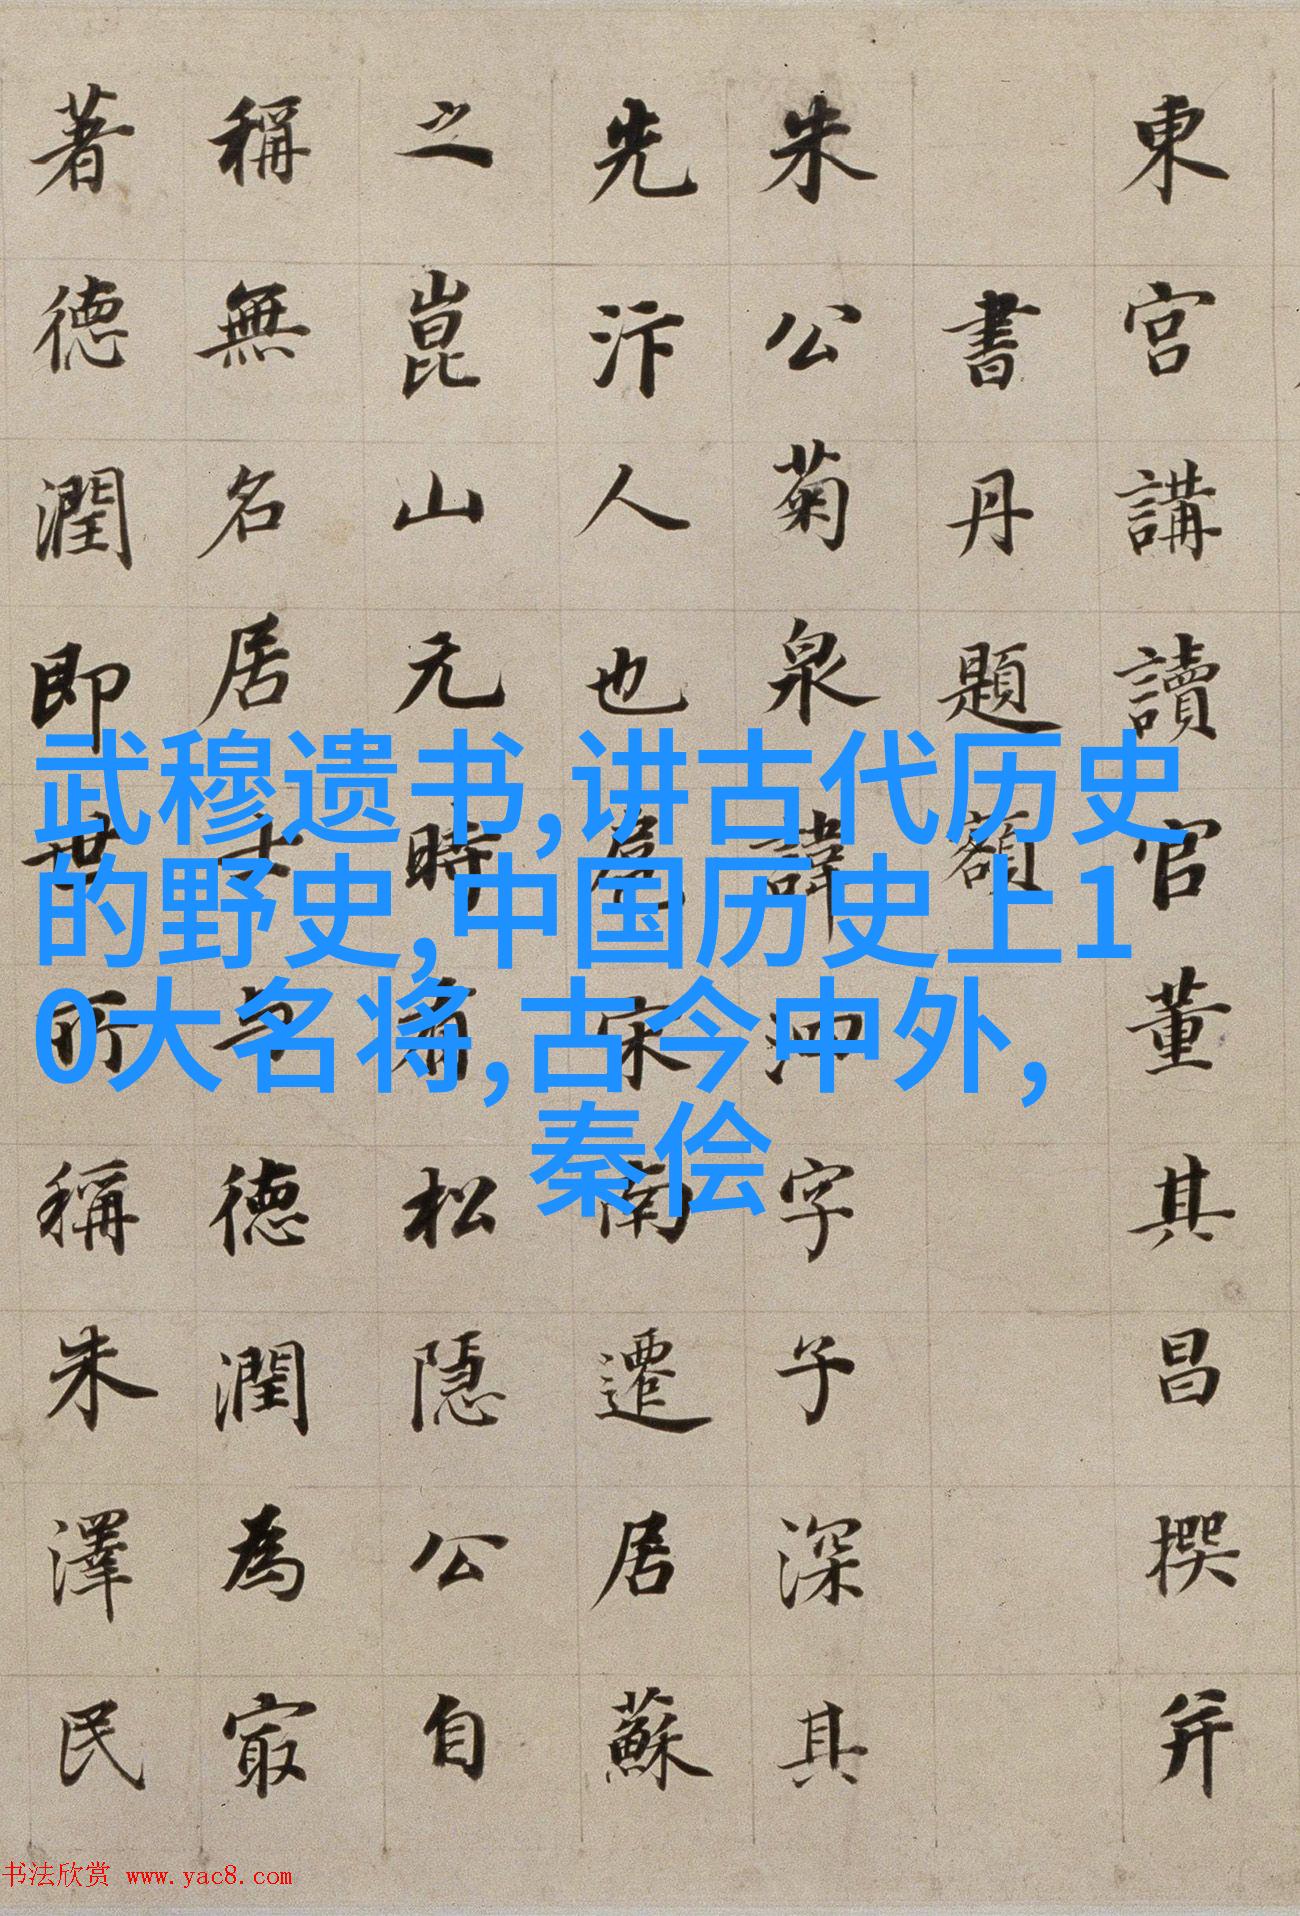 武穆遗书,讲古代历史
的野史,中国历史上1
0大名将,古今中外,
秦侩
東宮講讀官董其昌撰并
書丹題額
朱公菊泉諱字子深其
先汴人也扈宋南遷居蘇
之崑山元時有松隱公自
稱無名居士与德潤為㝡
著德潤即世所稱朱澤民
书法欣赏 www.yac8.com